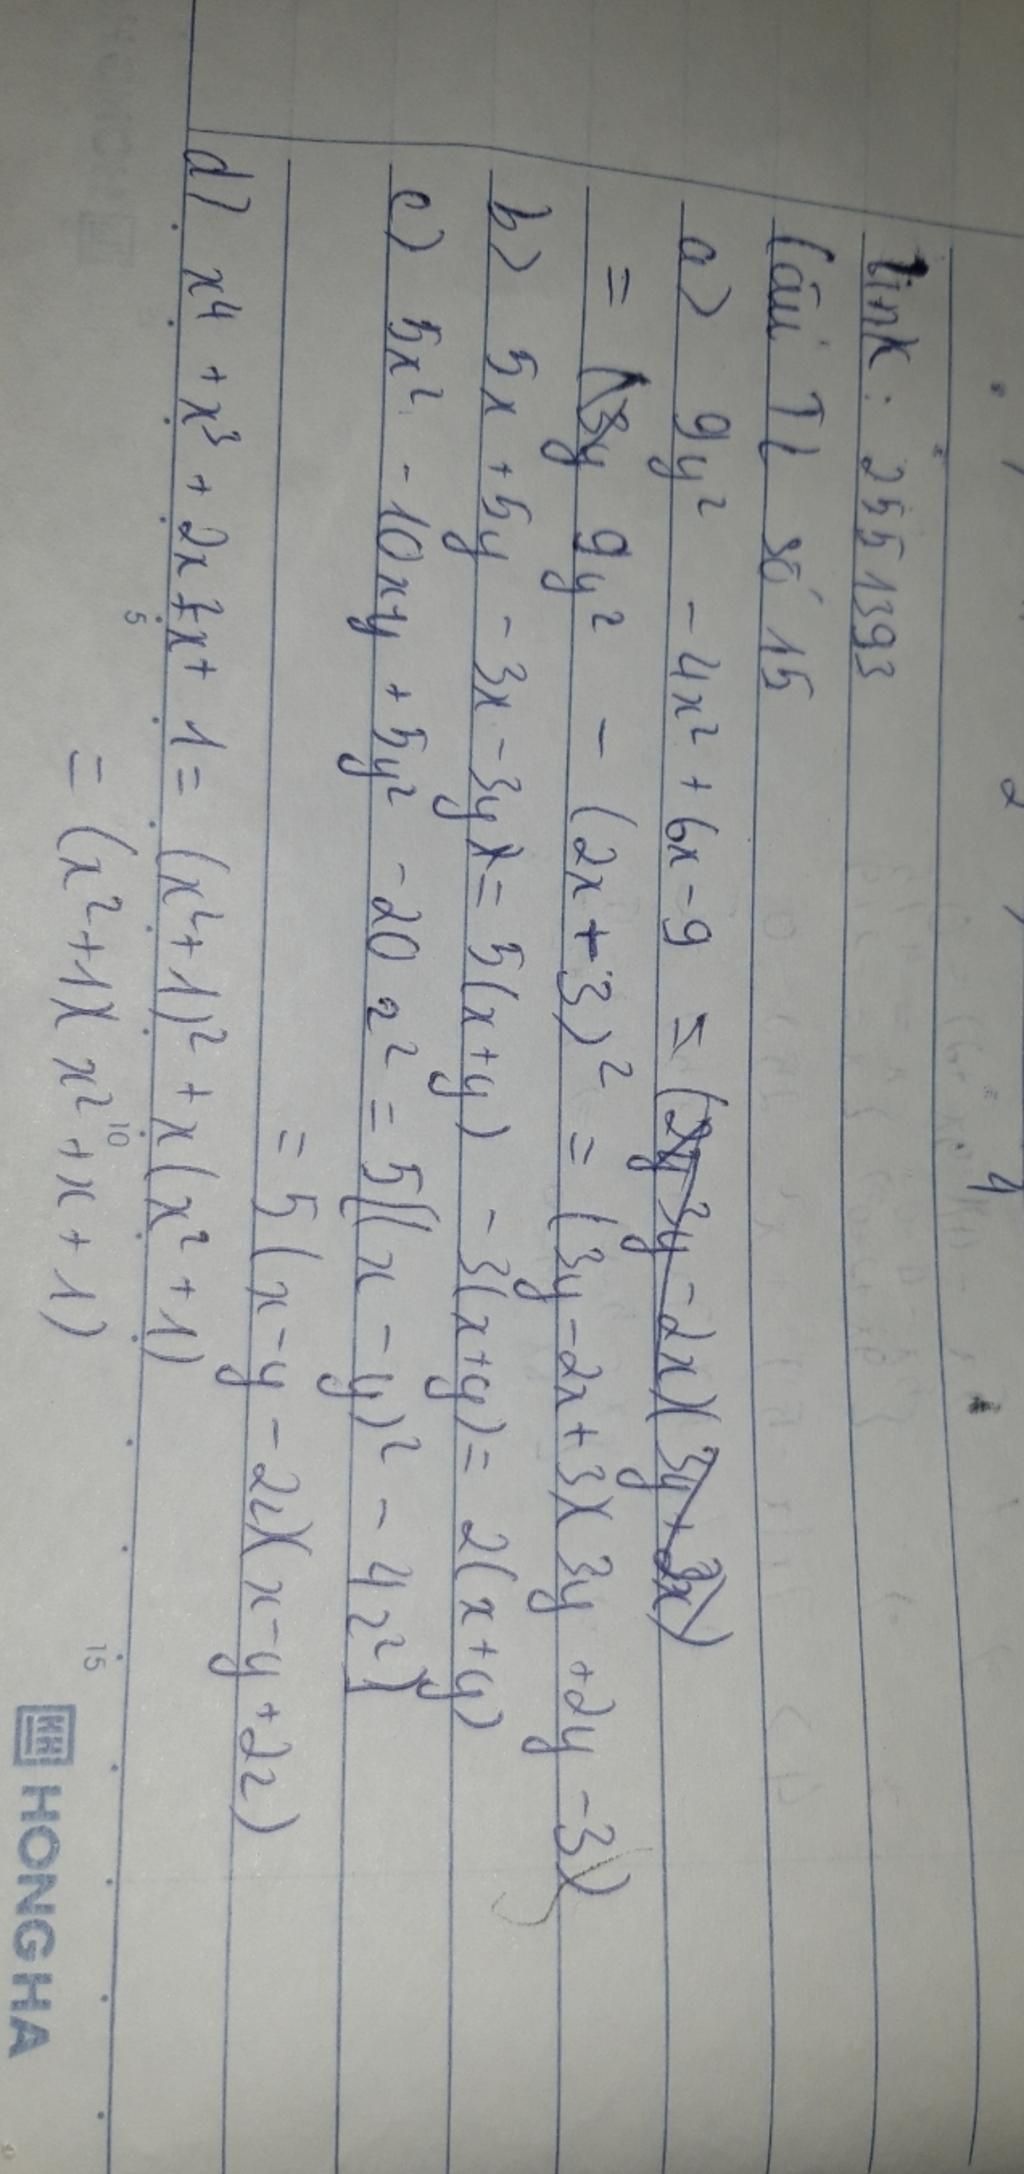 link: 2551393
Câu TL số 15
a) 9y² - 4x² + 6x - 9 =
= 9y² - (2x + 3)² = (3y - 2x + 3)(3y + 2y - 3)
b) 5x + 5y - 3x - 3y = 5(x + y) - 3(x + y) = 2(x + y)
c) 5x² - 10xy + 5y² - 20z² = 5[(x - y)² - 4z²]
= 5(x - y - 2z)(x - y + 2z)
d) x⁴ + x³ + 2x² + x + 1 = (x² + 1)² + x(x² + 1)
= (x² + 1)(x² + x + 1)
5
10
15
HONG HA